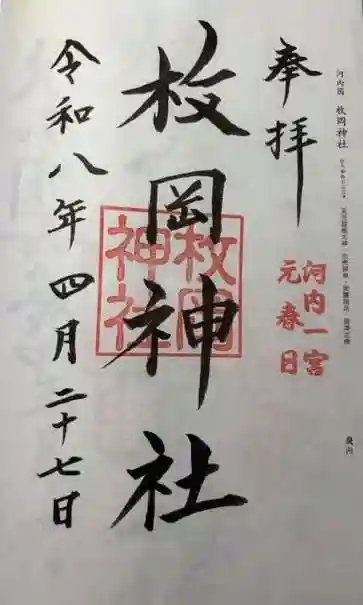 河内国 枚岡神社
畿内
奉拝
河内一宮
元春日
枚岡神社
枚岡
神社
令和八年四月二十七日